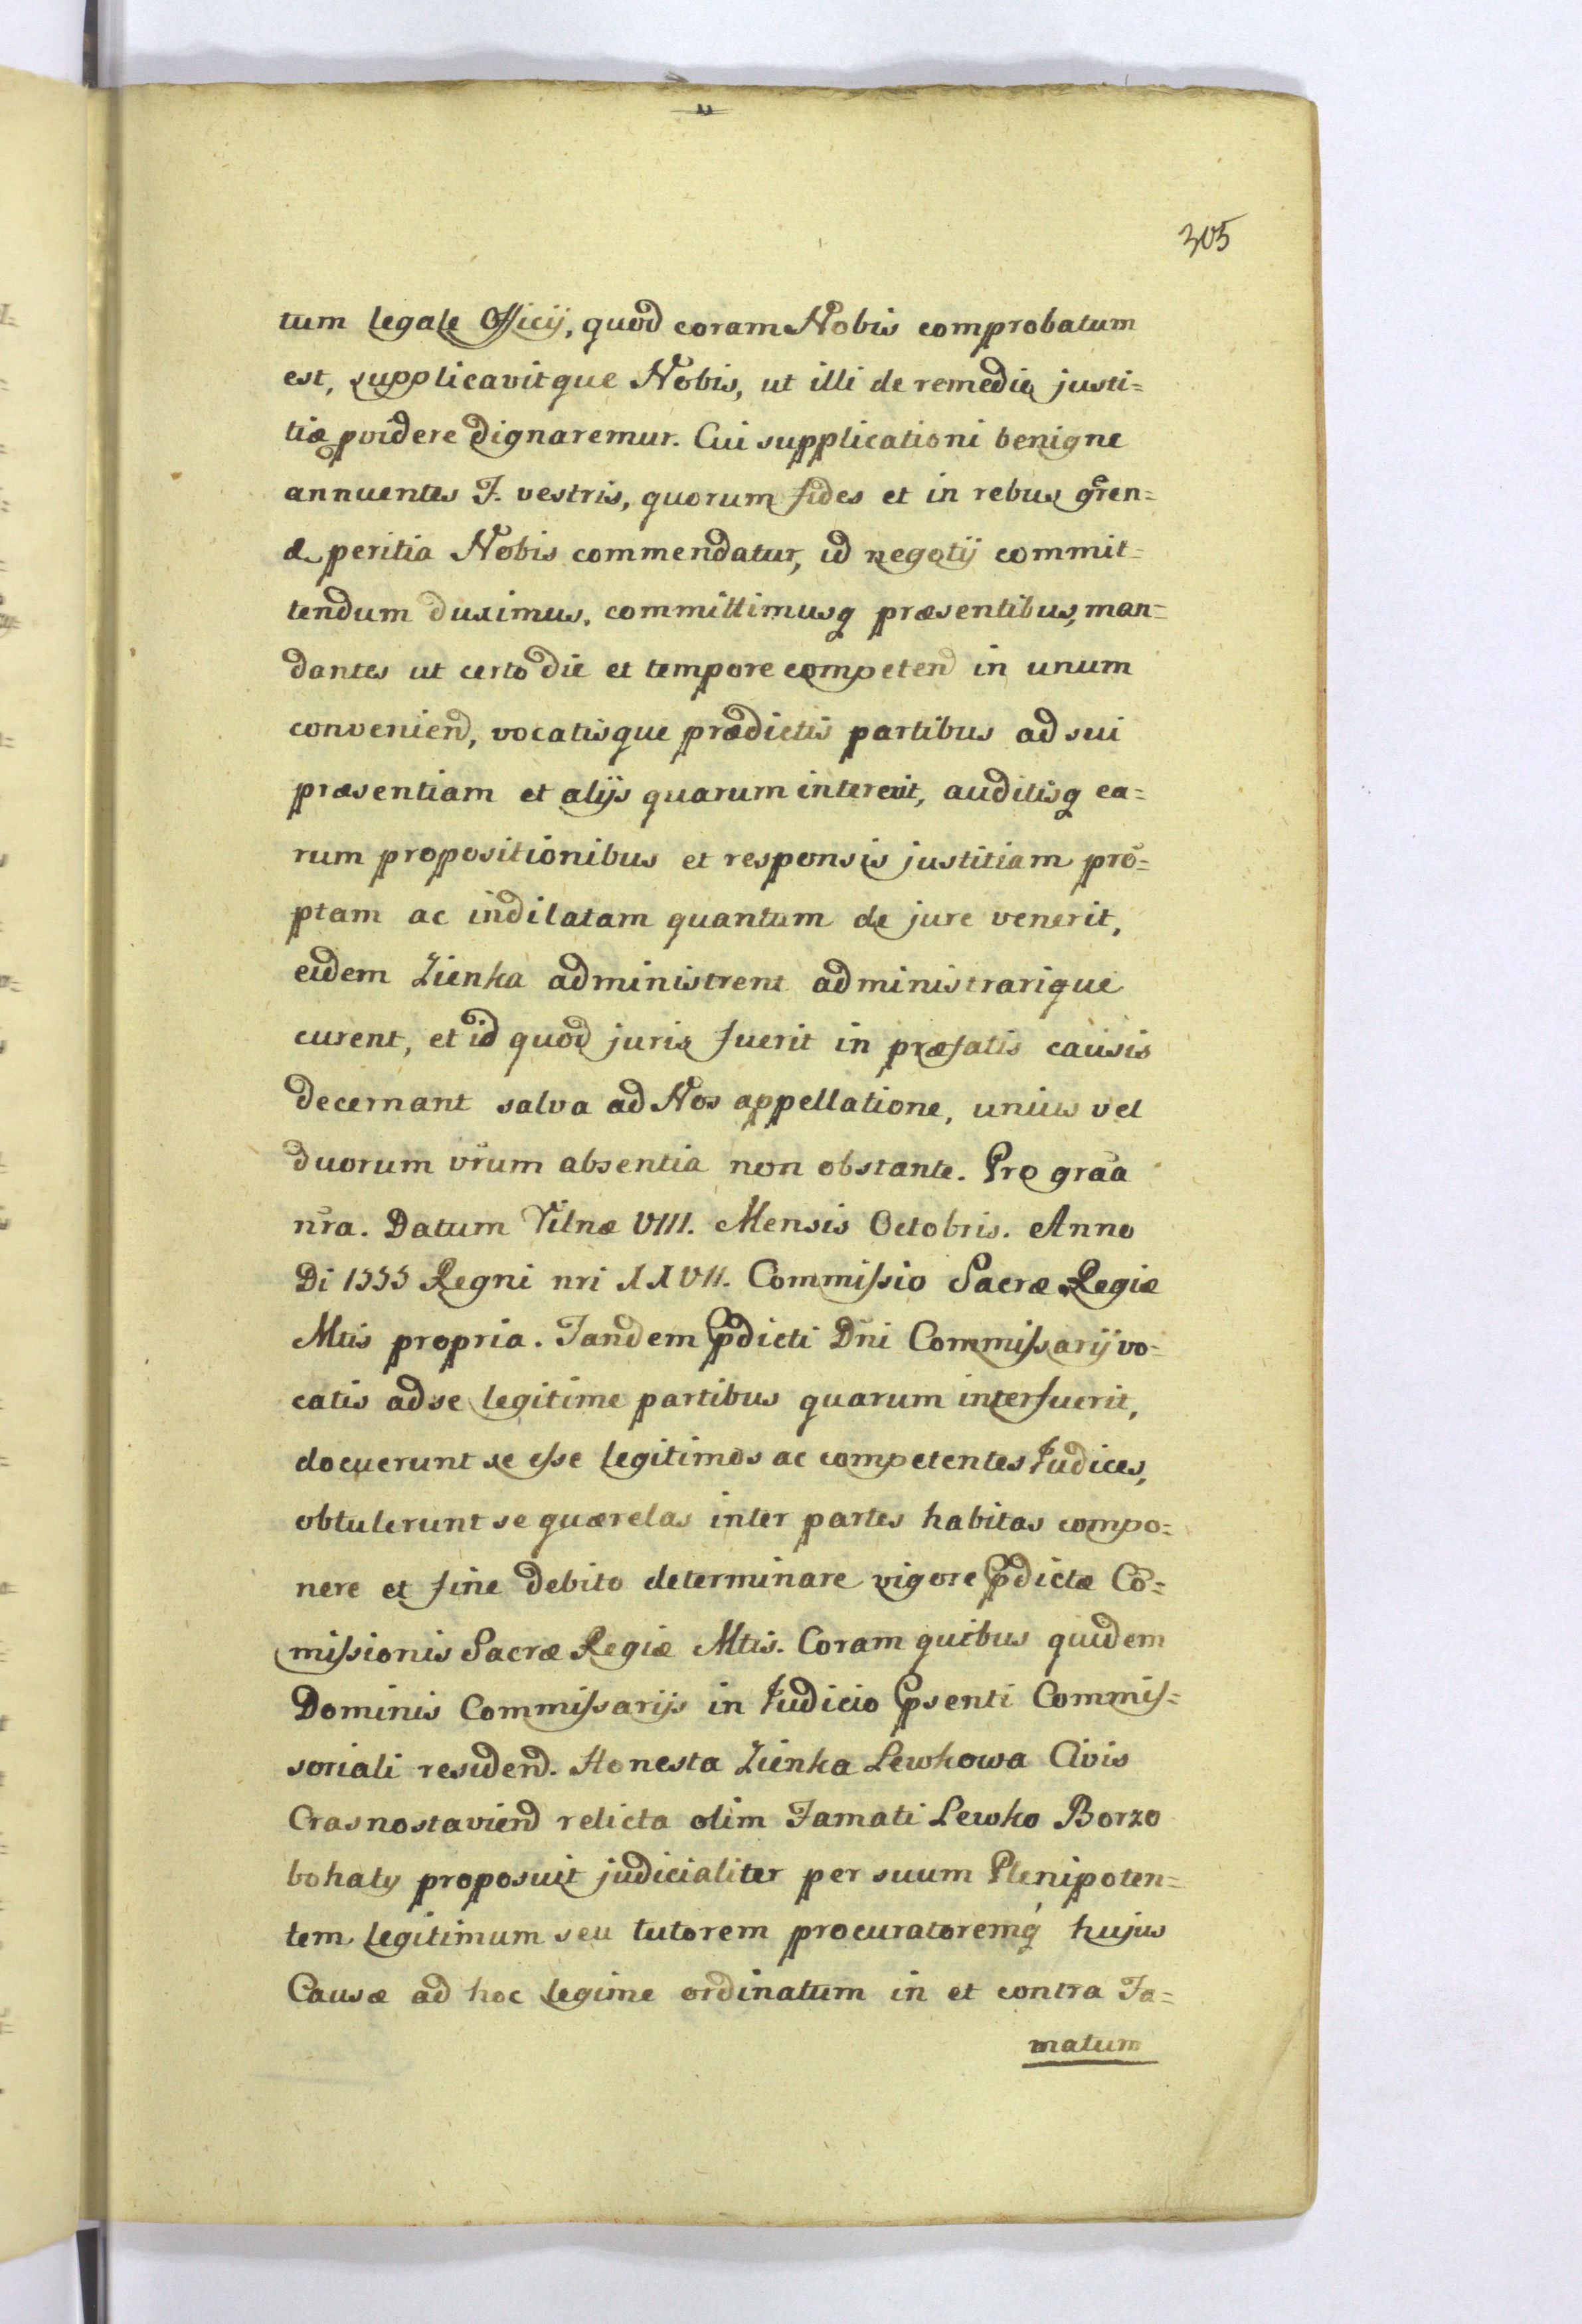 305
tum legale Officij, quod coram Nobis comprobatum
est, supplicavitque Nobis, ut illi de remedio justi=
tiæ pvidere dignaremur. Cui supplicationi benigne
annuentes F. vestris, quorum fides et in rebus geren=
d peritia Nobis commendatur, id negotij commit=
tendum duximus, committimusq præsentibus, man=
dantes ut certo die et tempore competen in unum
convenien, vocatisque prædictis partibus ad sui
præsentiam et alijs quarum intererit, auditisq ea=
rum propositionibus et responsis justitiam prō=
ptam ac indilatam quantum de jure venerit,
eidem Zienka administrent administrarique
curent, et id quod juris fuerit in præfatis causis
decernant salva ad Nos appellatione, unius vel
duorum vrūm absentia non obstante. Pro graā
nrā. Datum Vilnæ VIII. Mensis Octobris. Anno
Di 1555 Regni nri XXVII. Commissio Sacræ Regiæ
Mtis propria. Tandem pdicti Dni Commissarij vo=
catis ad se legitime partibus quarum interfuerit,
docuerunt se esse legitimos ac competentes Judices,
obtulerunt se quærelas inter partes habitas compo=
nere et fine debito determinare vigore pdictæ Cō=
missionis Sacræ Regiæ Mtis. Coram quibus quidem
Dominis Commissarijs in Judicio psenti Commis=
soriali residen. Honesta Zienka Lewkowa Civis
Crasnostavien relicta olim Famati Lewko Borzo
bohaty proposuit judicialiter per suum Plenipoten=
tem legitimum seu tutorem procuratoremq hujus
Causæ ad hoc legime ordinatum in et contra Fa=
matum